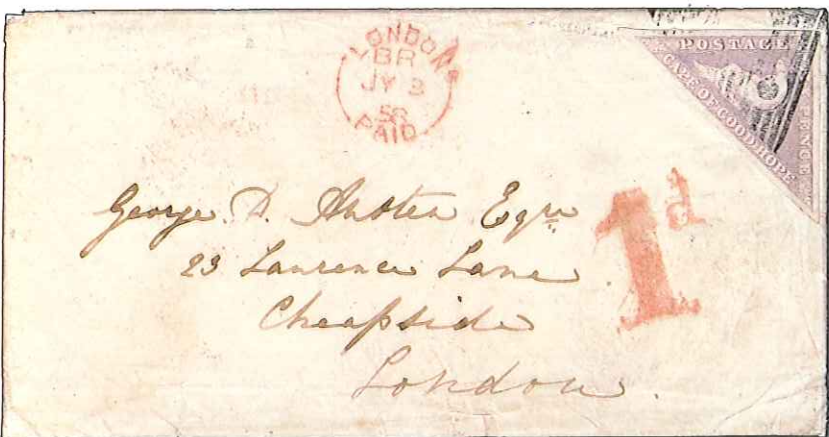 LONDON
BR
JY 3
58
PAID
POSTAGE
CAPE OF GOOD HOPE
PENCE
1d
George D. Esqre
23 Laurence Lane
Cheapside
London.